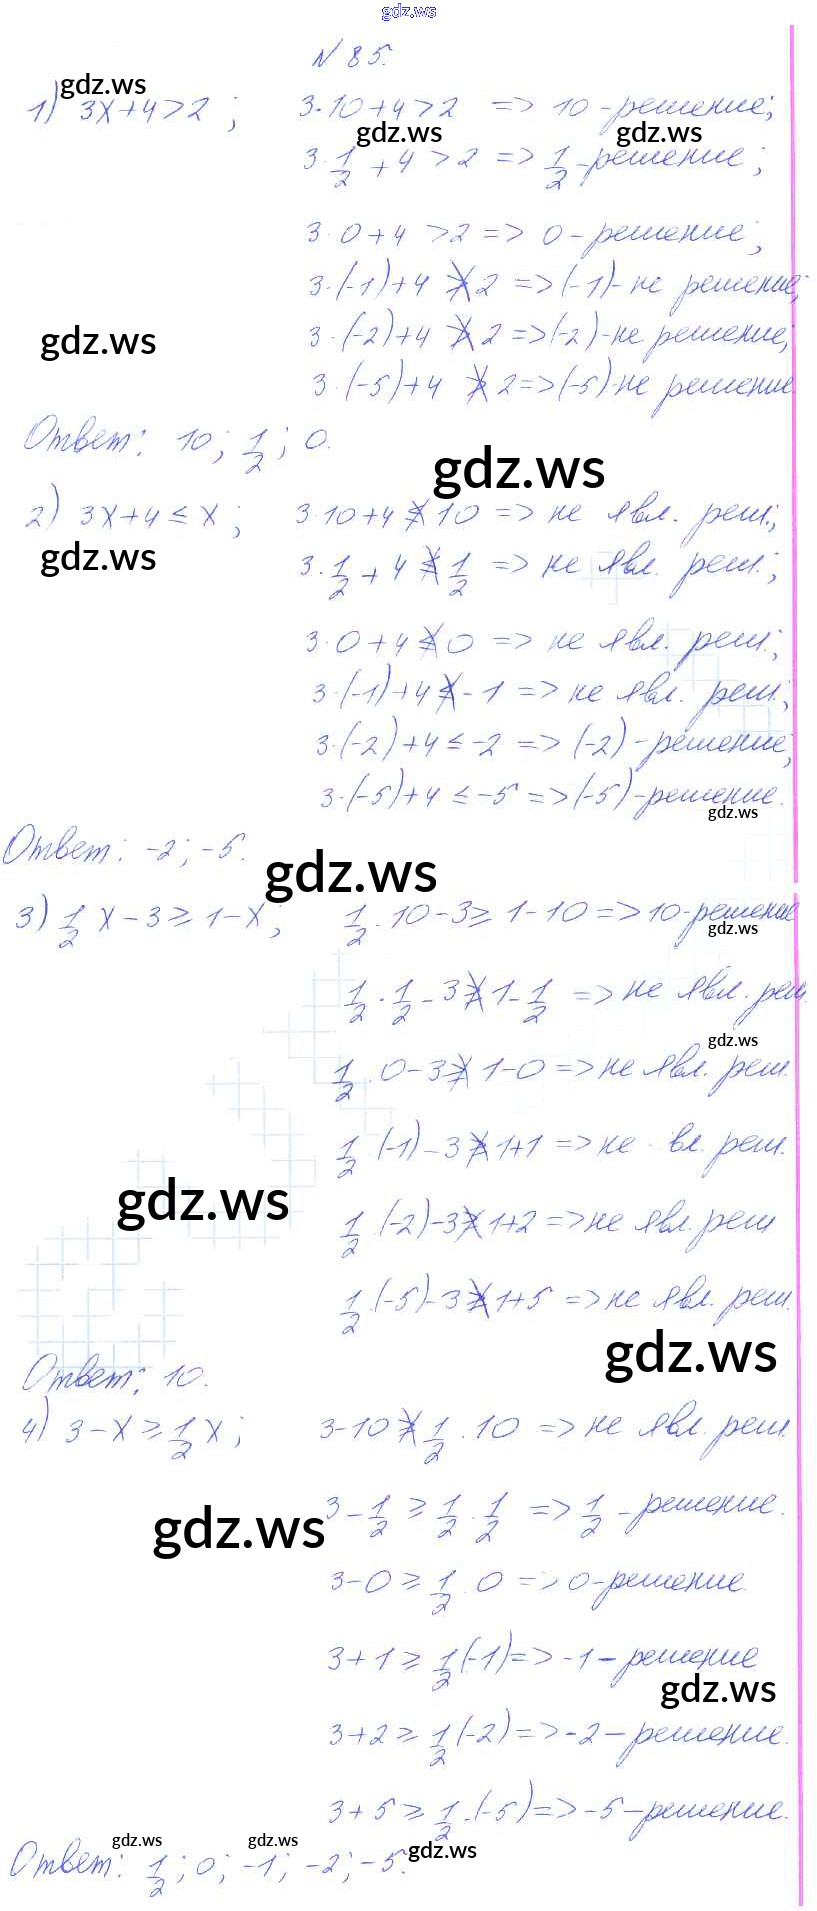 gdz.ws
N 85.
gdz.ws
1) 3x+4>2; 3·10+4>2 => 10-решение;
gdz.ws gdz.ws
3·1/2+4>2 => 1/2-решение;
3·0+4>2 => 0-решение;
3·(-1)+4≯2 => (-1)-не решение;
gdz.ws 3·(-2)+4≯2 => (-2)-не решение;
3·(-5)+4≯2 => (-5)-не решение.
Ответ: 10; 1/2; 0.
gdz.ws
2) 3x+4≤x; 3·10+4≰10 => не явл. реш.;
gdz.ws 3·1/2+4≰1/2 => не явл. реш.;
3·0+4≰0 => не явл. реш.;
3·(-1)+4≰-1 => не явл. реш.;
3·(-2)+4≤-2 => (-2)-решение;
3·(-5)+4≤-5 => (-5)-решение.
gdz.ws
Ответ: -2; -5.
gdz.ws
3) 1/2x-3≥1-x; 1/2·10-3≥1-10 => 10-решение
gdz.ws
1/2·1/2-3≱1-1/2 => не явл. реш.
gdz.ws
1/2·0-3≱1-0 => не явл. реш.
1/2·(-1)-3≱1+1 => не вл. реш.
gdz.ws
1/2·(-2)-3≱1+2 => не явл. реш
1/2·(-5)-3≱1+5 => не явл. реш.
gdz.ws
Ответ: 10.
4) 3-x≥1/2x; 3-10≱1/2·10 => не явл. реш.
3-1/2≥1/2·1/2 => 1/2-решение.
gdz.ws
3-0≥1/2·0 => 0-решение.
3+1≥1/2(-1) => -1-решение
gdz.ws
3+2≥1/2(-2) => -2-решение.
3+5≥1/2·(-5) => -5-решение.
gdz.ws gdz.ws gdz.ws
Ответ: 1/2; 0; -1; -2; -5.